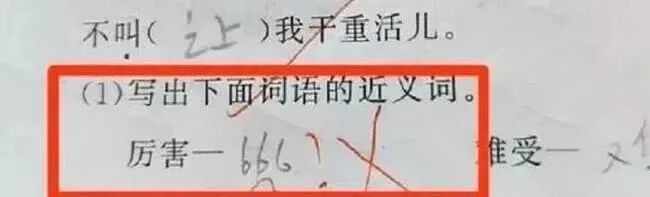 不叫(让)我干重活儿。
(1)写出下面词语的近义词。
厉害—666? 难受—又